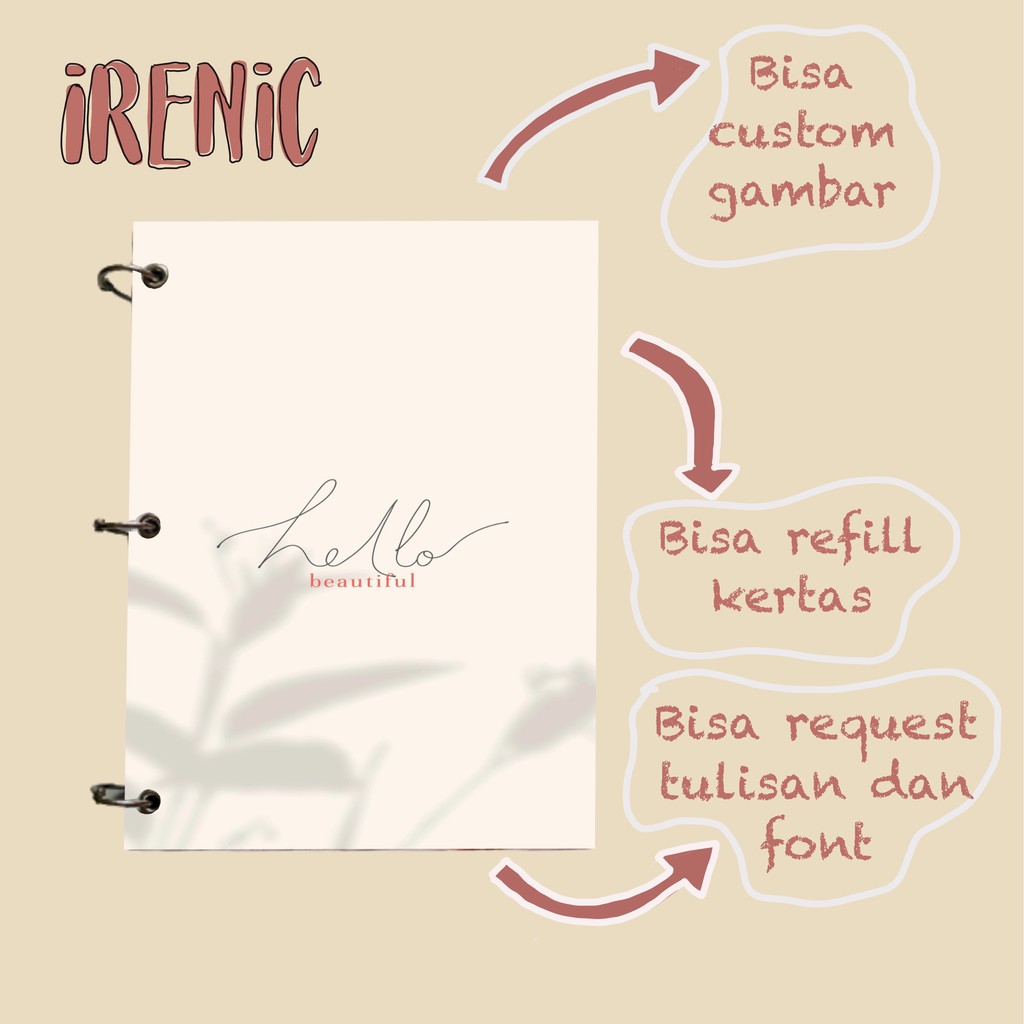 iRENiC
Bisa
custom
gambar
hello
beautiful
Bisa refill
kertas
Bisa request
tulisan dan
font